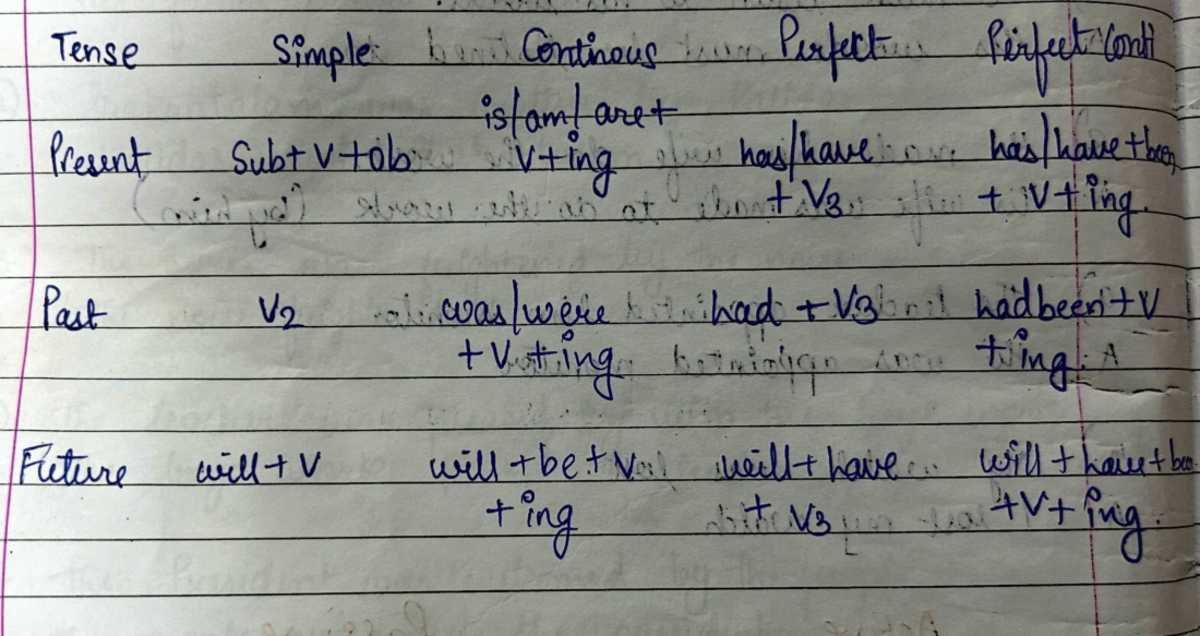 Tense Simple Continous Perfect Perfect Conti
is/am/are+
Present Sub+V+ob V+ing has/have has/have+been
+V3 +V+ing.
Past V2 was/were had+V3 had been+V
+V+ing +ing.
Future will+V will+be+V will+have will+have+been
+ing +V3 +V+ing.